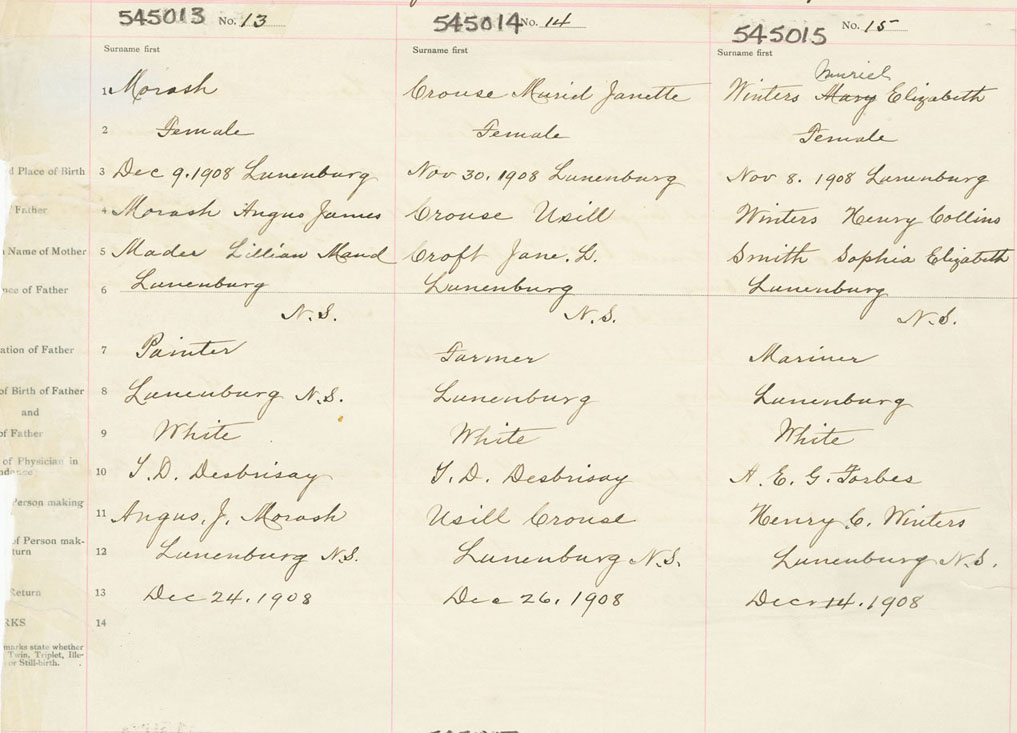 545013 No. 13 545014 No. 14 545015 No. 15
Surname first Surname first Surname first
Muriel
1 Morash Crouse Muriel Janette Winters Mary Elizabeth
2 Female Female Female
d Place of Birth 3 Dec 9. 1908 Lunenburg Nov 30. 1908 Lunenburg Nov 8. 1908 Lunenburg
Father 4 Morash Angus James Crouse Usill Winters Henry Collins
Name of Mother 5 Mader Lillian Maud Croft Jane. L. Smith Sophia Elizabeth
nce of Father 6 Lunenburg Lunenburg Lunenburg
N.S. N.S. N.S.
ation of Father 7 Painter Farmer Mariner
of Birth of Father 8 Lunenburg N.S. Lunenburg Lunenburg
and
of Father 9 White White White
of Physician in 10 T. D. Desbrisay T. D. Desbrisay A. E. G. Forbes
Person making 11 Angus. J. Morash Usill Crouse Henry C. Winters
of Person mak-
turn 12 Lunenburg N.S. Lunenburg N.S. Lunenburg N.S.
Return 13 Dec 24. 1908 Dec 26. 1908 Dec 14. 1908
RKS 14
marks state whether
Twin, Triplet, Ille-
or Still-birth.